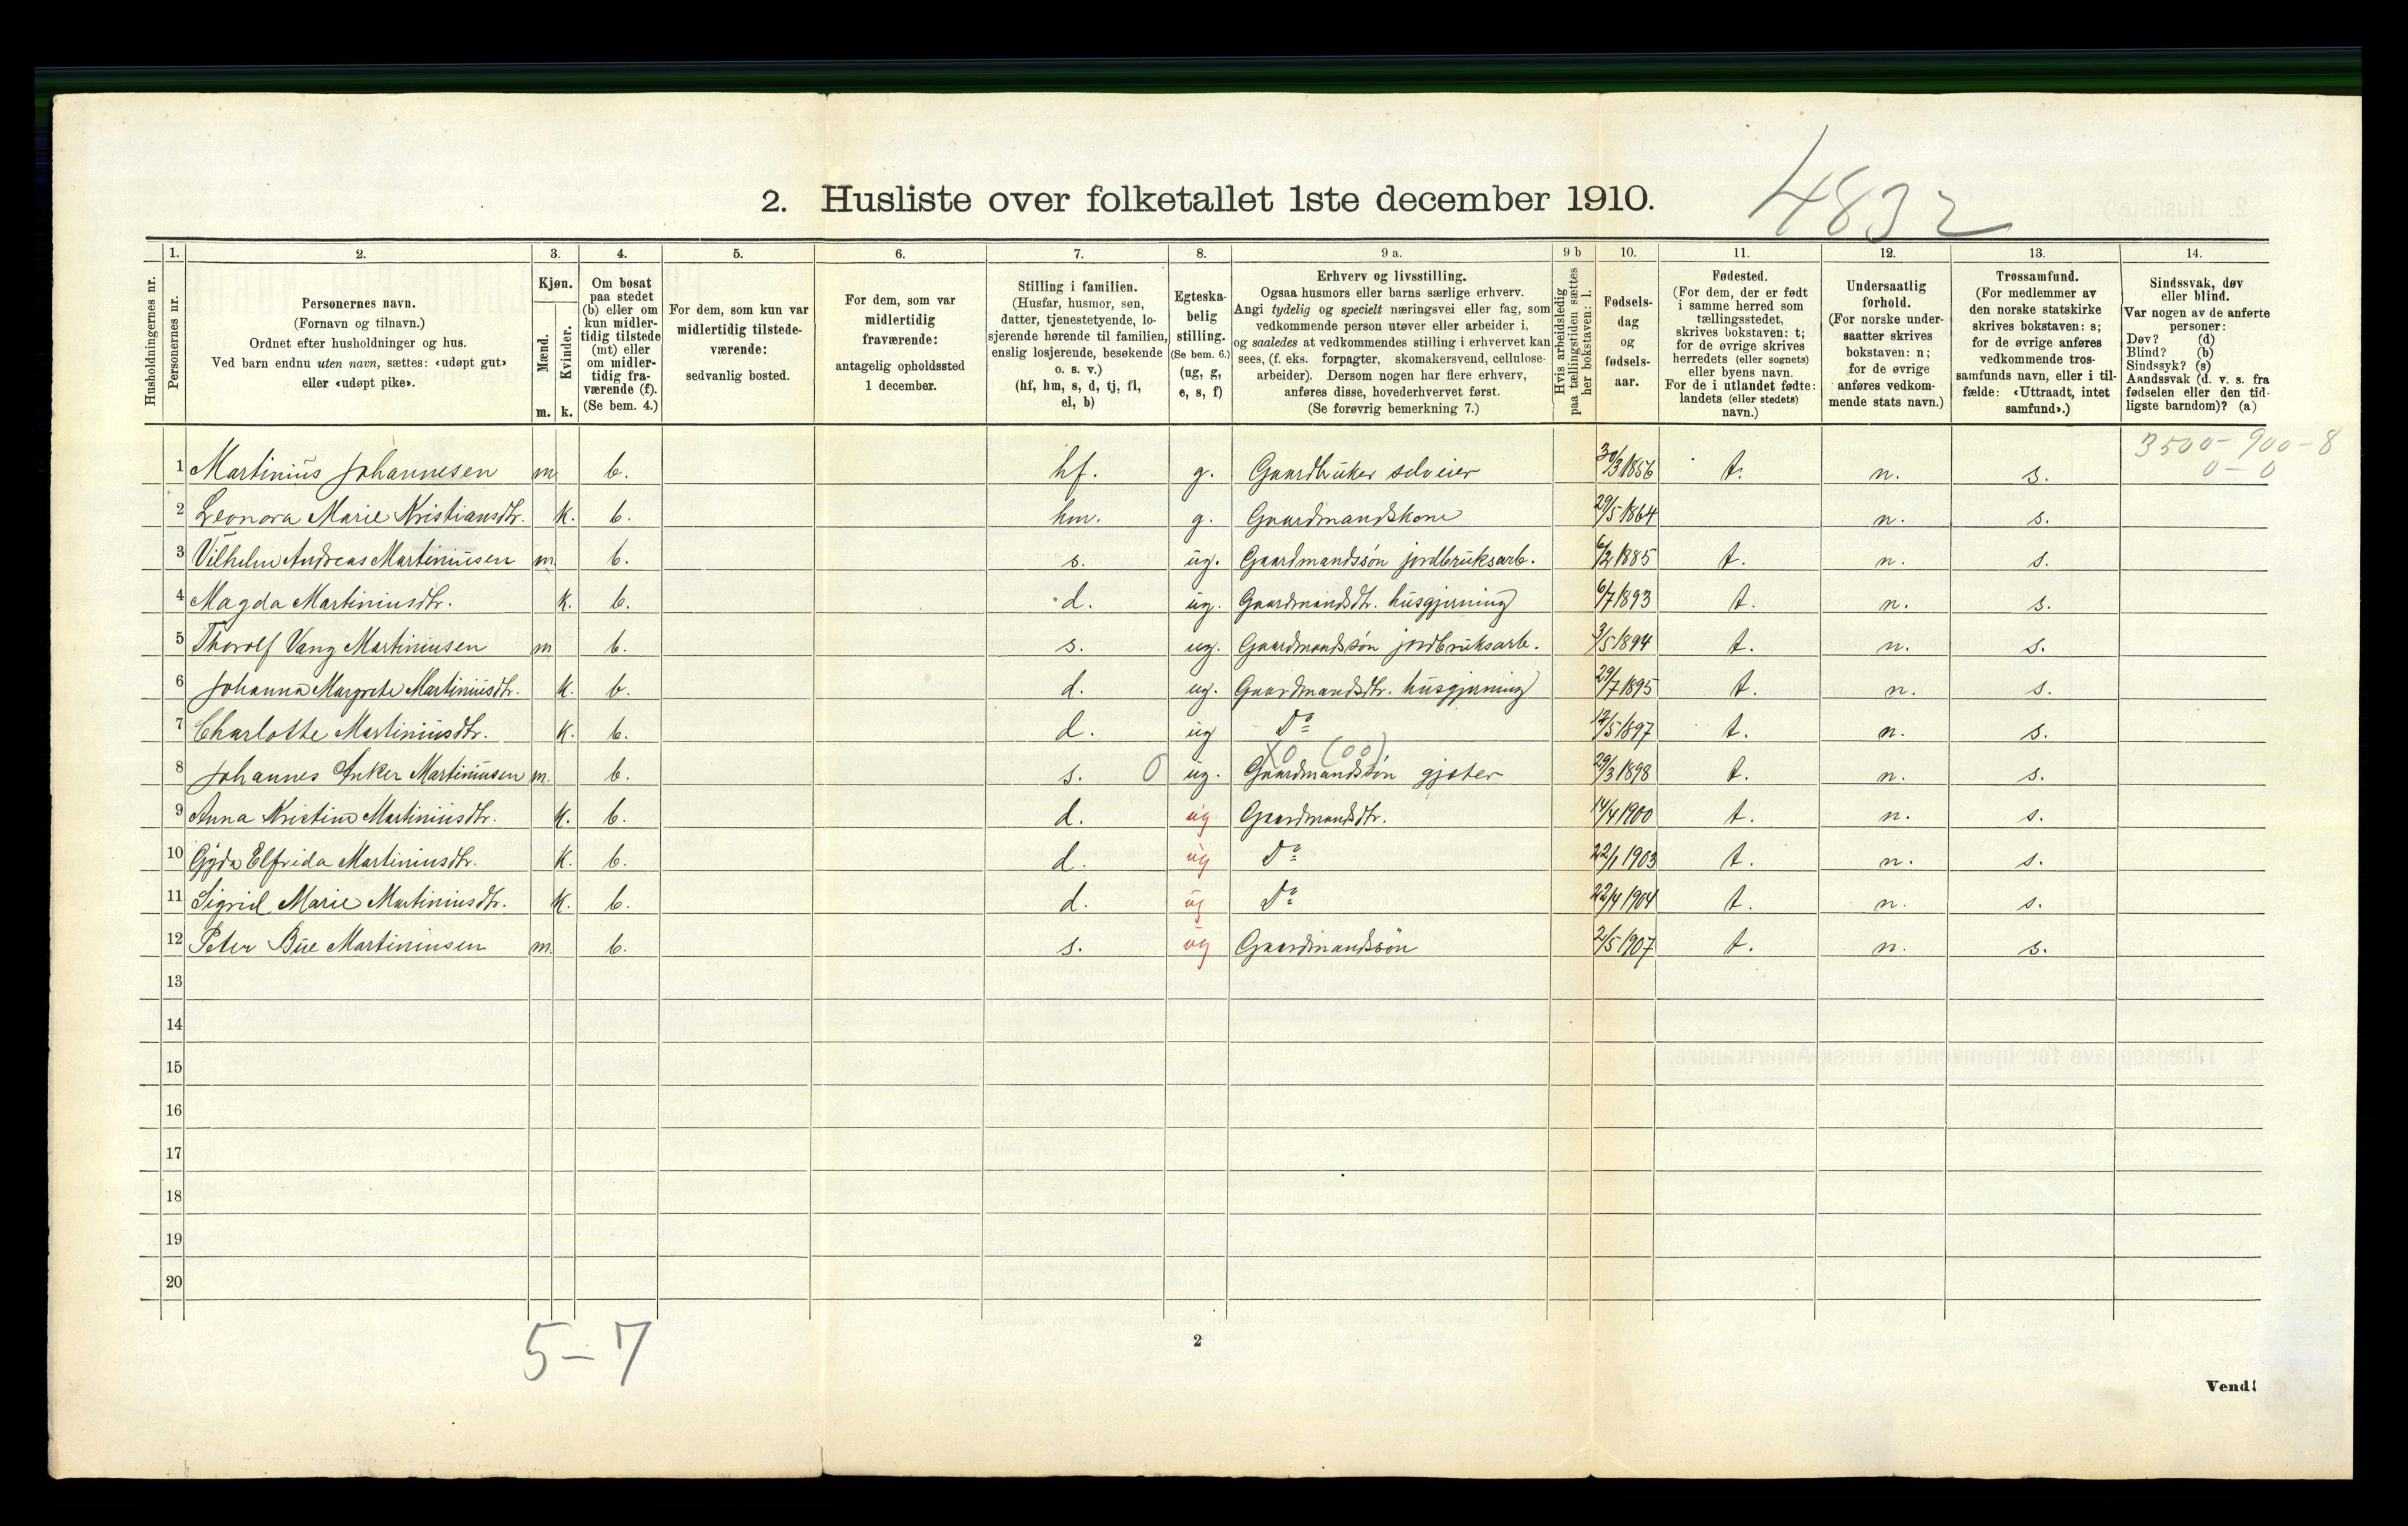 2. Husliste over folketallet 1ste december 1910.
4832
Husholdningernes nr.
1. Personernes nr.
2. Personernes navn.
(Fornavn og tilnavn.)
Ordnet efter husholdninger og hus.
Ved barn endnu uten navn, sættes: «udøpt gut»
eller «udøpt pike».
3. Kjøn.
Mænd. m.
Kvinder. k.
4. Om bosat
paa stedet
(b) eller om
kun midler-
tidig tilstede
(mt) eller
om midler-
tidig fra-
værende (f).
(Se bem. 4.)
5. For dem, som kun var
midlertidig tilstede-
værende:
sedvanlig bosted.
6. For dem, som var
midlertidig
fraværende:
antagelig opholdssted
1 december.
7. Stilling i familien.
(Husfar, husmor, søn,
datter, tjenestetyende, lo-
sjerende hørende til familien,
enslig losjerende, besøkende
o. s. v.)
(hf, hm, s, d, tj, fl,
el, b)
8. Egteska-
belig
stilling.
(Se bem. 6.)
(ug, g,
e, s, f)
9 a. Erhverv og livsstilling.
Ogsaa husmors eller barns særlige erhverv.
Angi tydelig og specielt næringsvei eller fag, som
vedkommende person utøver eller arbeider i,
og saaledes at vedkommendes stilling i erhvervet kan
sees, (f. eks. forpagter, skomakersvend, cellulose-
arbeider). Dersom nogen har flere erhverv,
anføres disse, hovederhvervet først.
(Se forøvrig bemerkning 7.)
9 b Hvis arbeidsledig
paa tællingstiden sættes
her bokstaven: l.
10. Fødsels-
dag
og
fødsels-
aar.
11. Fødested.
(For dem, der er født
i samme herred som
tællingsstedet,
skrives bokstaven: t;
for de øvrige skrives
herredets (eller sognets)
eller byens navn.
For de i utlandet fødte:
landets (eller stedets)
navn.)
12. Undersaatlig
forhold.
(For norske under-
saatter skrives
bokstaven: n;
for de øvrige
anføres vedkom-
mende stats navn.)
13. Trossamfund.
(For medlemmer av
den norske statskirke
skrives bokstaven: s;
for de øvrige anføres
vedkommende tros-
samfunds navn, eller i til-
fælde: «Uttraadt, intet
samfund».)
14. Sindssvak, døv
eller blind.
Var nogen av de anførte
personer:
Døv? (d)
Blind? (b)
Sindssyk? (s)
Aandssvak (d. v. s. fra
fødselen eller den tid-
ligste barndom)? (a)
3500 - 900 - 8
0 - 0
1 Martinius Johannesen m b. hf. g. Gaardbruker selveier 30/3 1856 t. n. s.
2 Leonora Marie Kristiansdtr. k. b. hm. g. Gaardmandskone 29/5 1864 n. s.
3 Vilhelm Andreas Martiniusen m b. s. ug. Gaardmandssøn jordbruksarb. 6/2 1885 t. n. s.
4 Magda Martiniusdtr. k. b. d. ug. Gaardmandsdtr. husgjerning 6/7 1893 t. n. s.
5 Thorolf Vang Martiniusen m b. s. ug. Gaardmandssøn jordbruksarb. 3/5 1894 t. n. s.
6 Johanna Margrete Martiniusdtr. k. b. d. ug. Gaardmandsdtr. husgjerning 29/7 1895 t. n. s.
7 Charlotte Martiniusdtr. k. b. d. ug Do 12/5 1897 t. n. s.
X0 (00)
8 Johannes Anker Martiniusen m. b. s. 0 ug. Gaardmandssøn gjæter 29/3 1898 t. n. s.
9 Anna Kristine Martiniusdtr. k. b. d. ug Gaardmandsdtr. 14/4 1900 t. n. s.
10 Gyda Elfrida Martiniusdtr. k. b. d. ug Do 22/1 1903 t. n. s.
11 Sigrid Marie Martiniusdtr. k. b. d. ug Do 22/4 1904 t. n. s.
12 Peter Bue Martiniusen m. b. s. ug Gaardmandssön 2/5 1907 t. n. s.
13
14
15
16
17
18
19
20
5-7
2
Vend!